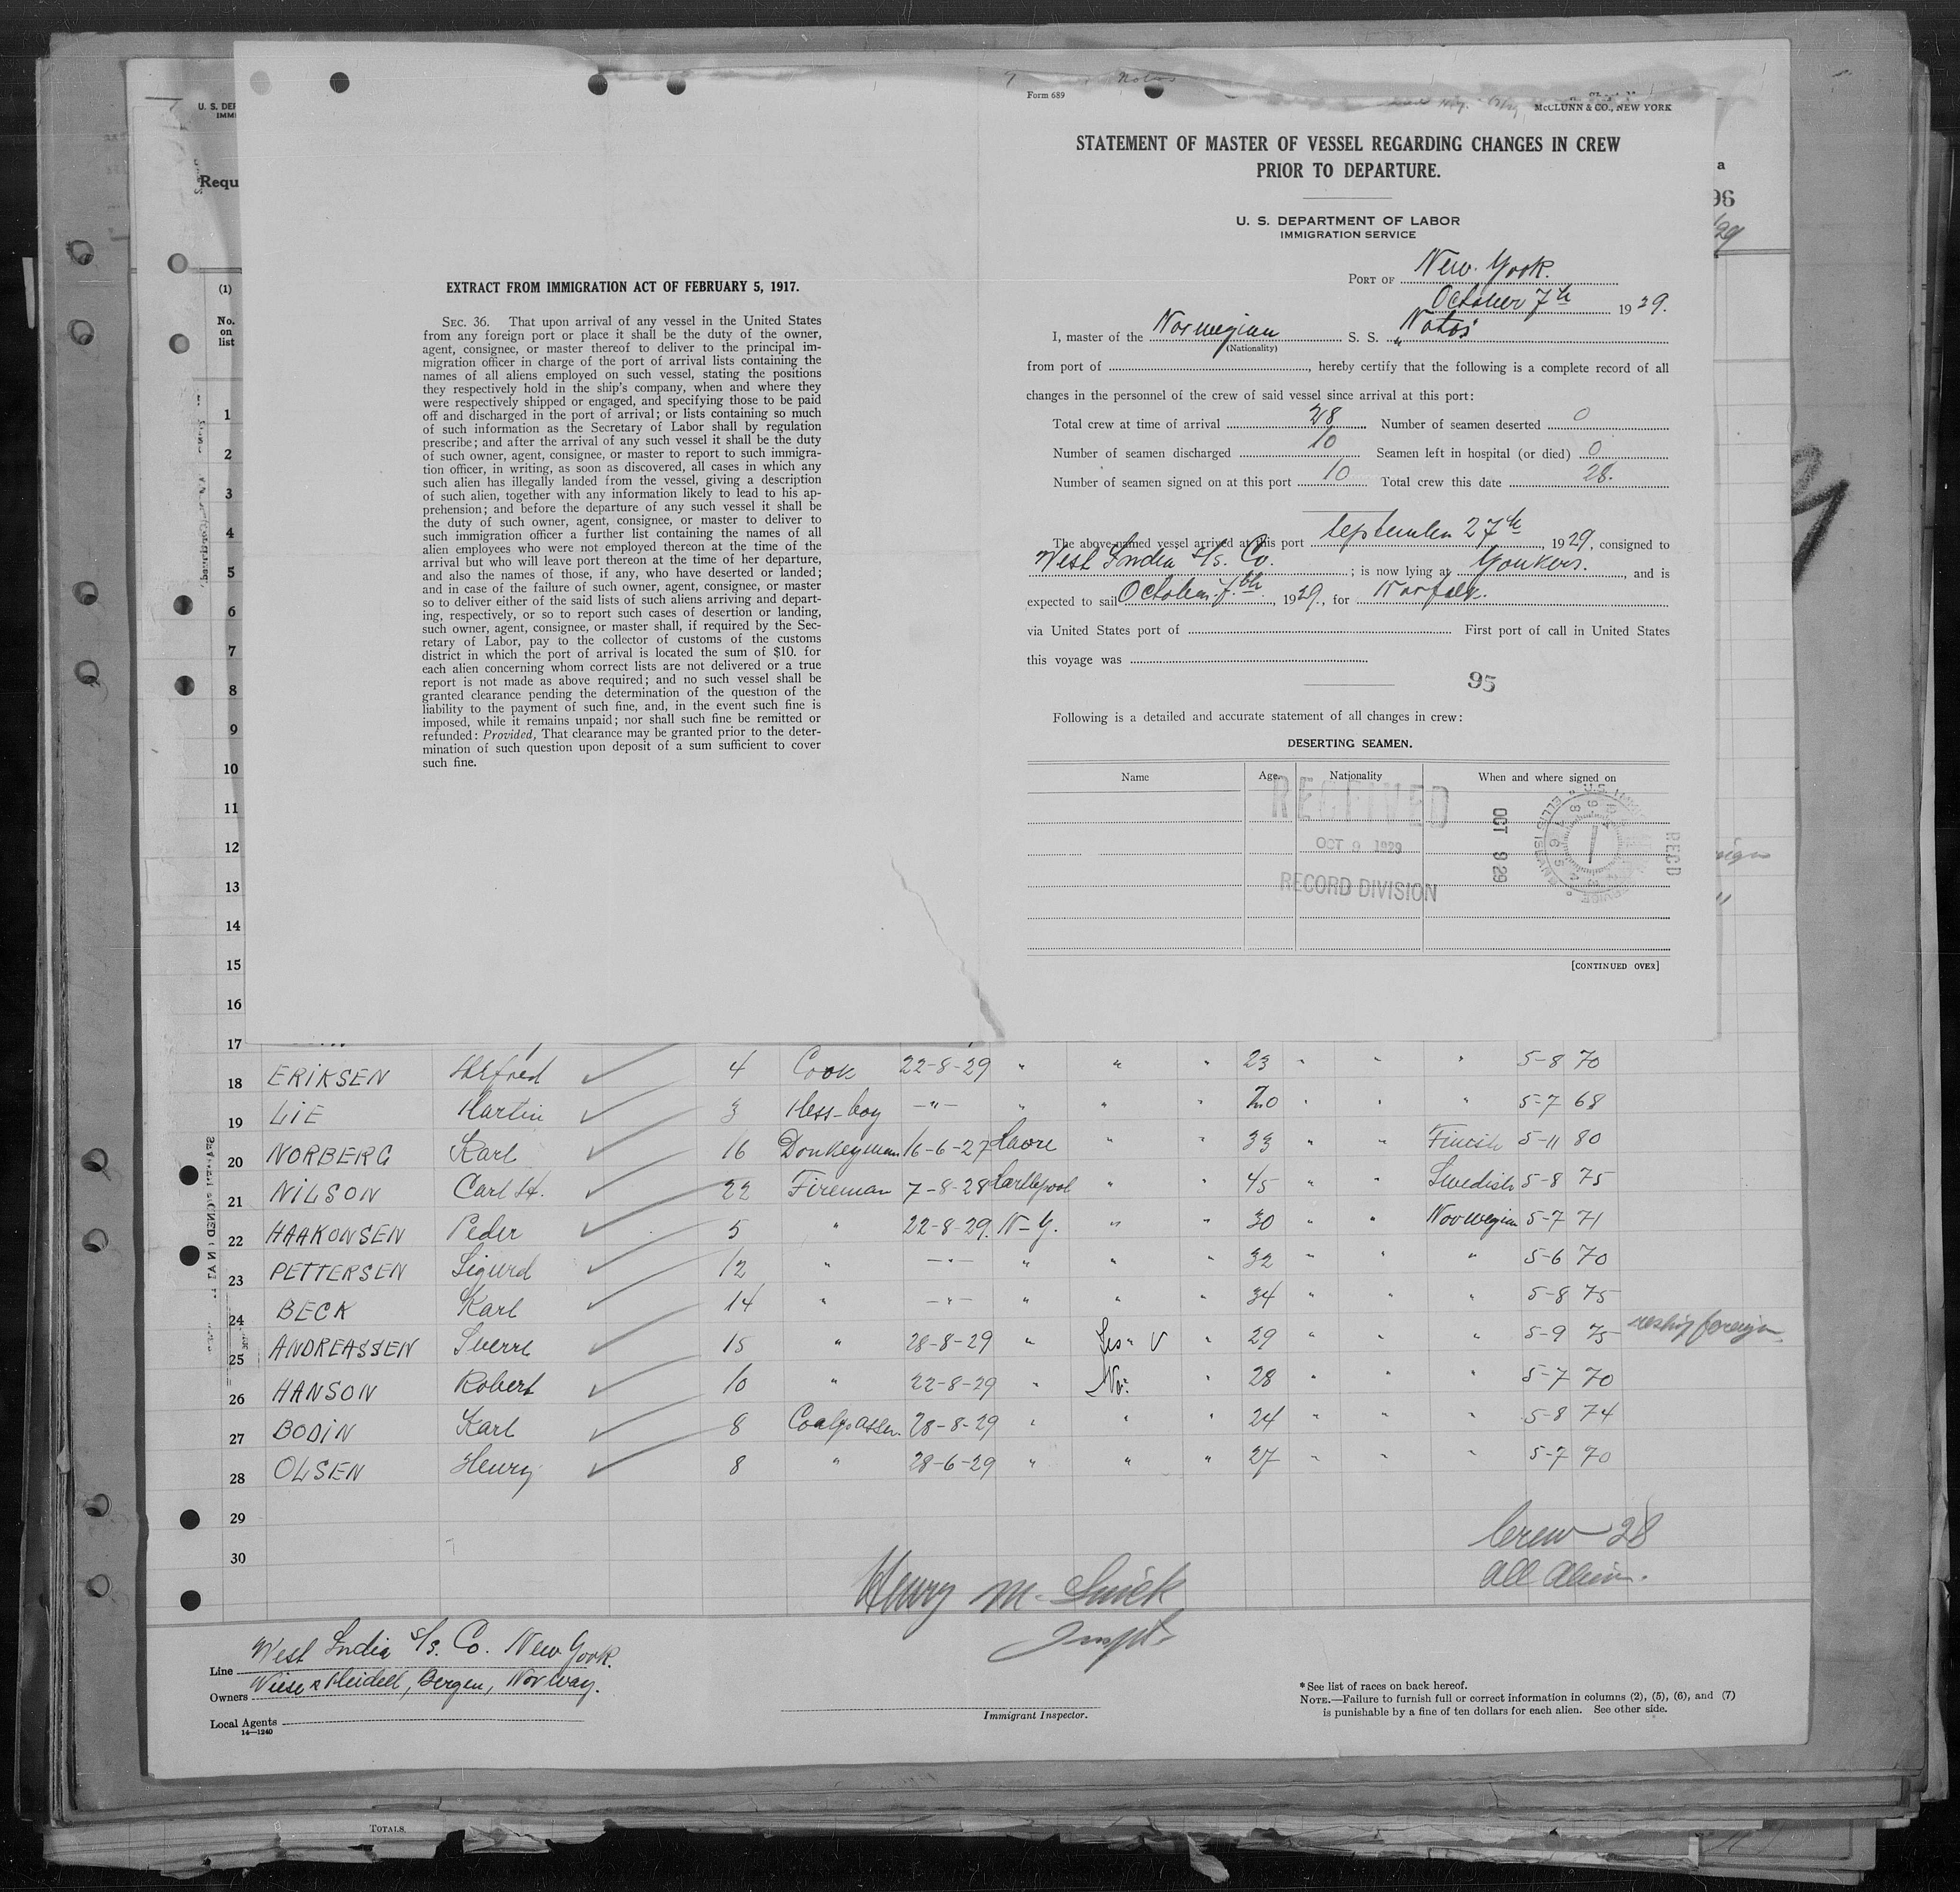 Form 689
McCLUNN & CO., NEW YORK
STATEMENT OF MASTER OF VESSEL REGARDING CHANGES IN CREW
PRIOR TO DEPARTURE.
U. S. DEPARTMENT OF LABOR
IMMIGRATION SERVICE
PORT OF New York.
October 7th 1929.
I, master of the Norwegian S. S. „Notos"
(Nationality)
from port of , hereby certify that the following is a complete record of all
changes in the personnel of the crew of said vessel since arrival at this port:
Total crew at time of arrival 28 Number of seamen deserted 0
Number of seamen discharged 10 Seamen left in hospital (or died) 0
Number of seamen signed on at this port 10 Total crew this date 28.
The above-named vessel arrived at this port September 27th, 1929, consigned to
West India S/s. Co. ; is now lying at Yonkers. , and is
expected to sail October 7th. , 1929., for Norfolk.
via United States port of First port of call in United States
this voyage was
95
Following is a detailed and accurate statement of all changes in crew:
DESERTING SEAMEN.
Name Age. Nationality When and where signed on
RECEIVED
OCT 9 1929
RECORD DIVISION
OCT 9 29
RECD
[CONTINUED OVER]
EXTRACT FROM IMMIGRATION ACT OF FEBRUARY 5, 1917.
SEC. 36. That upon arrival of any vessel in the United States
from any foreign port or place it shall be the duty of the owner,
agent, consignee, or master thereof to deliver to the principal im-
migration officer in charge of the port of arrival lists containing the
names of all aliens employed on such vessel, stating the positions
they respectively hold in the ship's company, when and where they
were respectively shipped or engaged, and specifying those to be paid
off and discharged in the port of arrival; or lists containing so much
of such information as the Secretary of Labor shall by regulation
prescribe; and after the arrival of any such vessel it shall be the duty
of such owner, agent, consignee, or master to report to such immigra-
tion officer, in writing, as soon as discovered, all cases in which any
such alien has illegally landed from the vessel, giving a description
of such alien, together with any information likely to lead to his ap-
prehension; and before the departure of any such vessel it shall be
the duty of such owner, agent, consignee, or master to deliver to
such immigration officer a further list containing the names of all
alien employees who were not employed thereon at the time of the
arrival but who will leave port thereon at the time of her departure,
and also the names of those, if any, who have deserted or landed;
and in case of the failure of such owner, agent, consignee, or master
so to deliver either of the said lists of such aliens arriving and depart-
ing, respectively, or so to report such cases of desertion or landing,
such owner, agent, consignee, or master shall, if required by the Sec-
retary of Labor, pay to the collector of customs of the customs
district in which the port of arrival is located the sum of $10. for
each alien concerning whom correct lists are not delivered or a true
report is not made as above required; and no such vessel shall be
granted clearance pending the determination of the question of the
liability to the payment of such fine, and, in the event such fine is
imposed, while it remains unpaid; nor shall such fine be remitted or
refunded: Provided, That clearance may be granted prior to the deter-
mination of such question upon deposit of a sum sufficient to cover
such fine.
(1)
No.
on
list
1
2
3
4
5
6
7
8
9
10
11
12
13
14
15
16
17
18 ERIKSEN Alfred 4 Cook 22-8-29 " " " 23 " " " 5-8 70
19 LIE Martin 3 Mess-boy -"- " " " 20 " " " 5-7 68
20 NORBERG Karl 16 Donkeyman 16-6-27 Havre " " 33 " " Finish 5-11 80
21 NILSON Carl H. 22 Fireman 7-8-28 Hartlepool " " 45 " " Swedish 5-8 75
22 HAAKONSEN Peder 5 " 22-8-29. N-Y. " " 30 " " Norwegian 5-7 71
23 PETTERSEN Sigurd 12 " -"- " " " 32 " " " 5-6 70
24 BECK Karl 14 " -"- " " " 34 " " " 5-8 75
25 ANDREASSEN Sverre 15 " 28-8-29 " Yes " 29 " " " 5-9 75 reship foreign
26 HANSON Robert 10 " 22-8-29 " No. " 28 " " " 5-7 70
27 BODIN Karl 8 Coalpasser. 28-8-29 " " " 24 " " " 5-8 74
28 OLSEN Henry 8 " 28-6-29 " " " 27 " " " 5-7 70
29
30
Crew 28
All Alien.
Henry M.
Inspt.
Line West India S/s. Co. New York.
Owners Wiese & Meidell, Bergen, Norway.
Local Agents
14—1240
Immigrant Inspector.
* See list of races on back hereof.
NOTE.—Failure to furnish full or correct information in columns (2), (5), (6), and (7)
is punishable by a fine of ten dollars for each alien. See other side.
TOTALS.